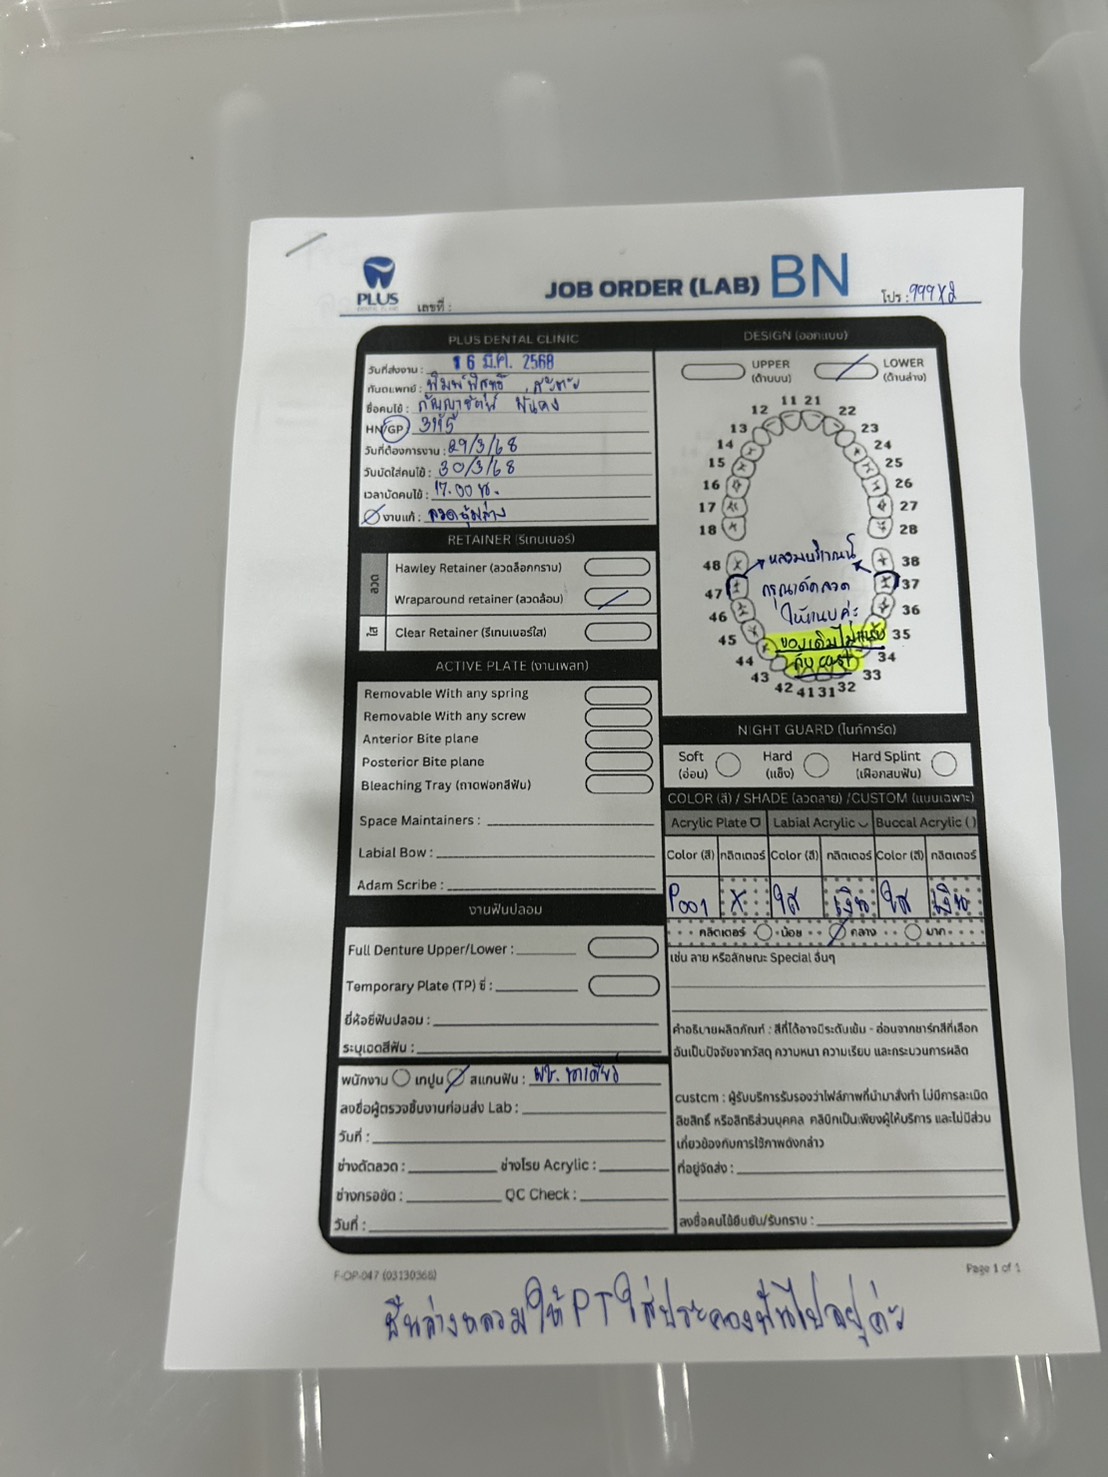 PLUS
DENTAL CLINIC
เลขที่ :
JOB ORDER (LAB) BN
โปร : 999x2
PLUS DENTAL CLINIC
วันที่ส่งงาน : 16 มี.ค. 2568
ทันตแพทย์ : พิมพ์พิสุทธิ์
ชื่อคนไข้ :
HN/GP 3195
วันที่ต้องการงาน : 29/3/68
วันนัดใส่คนไข้ : 30/3/68
เวลานัดคนไข้ : 17.00 น.
งานแก้ : ลวดอุ้มล่าง
RETAINER (รีเทนเนอร์)
ลวด
Hawley Retainer (ลวดล็อกกราม)
Wraparound retainer (ลวดล้อม)
ใส
Clear Retainer (รีเทนเนอร์ใส)
ACTIVE PLATE (งานเพลท)
Removable With any spring
Removable With any screw
Anterior Bite plane
Posterior Bite plane
Bleaching Tray (ถาดฟอกสีฟัน)
Space Maintainers :
Labial Bow :
Adam Scribe :
งานฟันปลอม
Full Denture Upper/Lower :
Temporary Plate (TP) ซี่ :
ยี่ห้อซี่ฟันปลอม :
ระบุเฉดสีฟัน :
พนักงาน เทปูน สแกนฟัน : ผช.
ลงชื่อผู้ตรวจชิ้นงานก่อนส่ง Lab :
วันที่ :
ช่างดัดลวด : ช่างโรย Acrylic :
ช่างกรอขัด : QC Check :
วันที่ :
DESIGN (ออกแบบ)
UPPER (ด้านบน) LOWER (ด้านล่าง)
11 21
12 22
13 23
14 24
15 25
16 26
17 27
18 28
48 38
47 37
46 36
45 35
44 34
43 33
42 41 31 32
หลวมบริเวณนี้
กรุณาดัดลวด
ให้แนบค่ะ
ของเดิมไม่แนบ
กับ cast
NIGHT GUARD (ไนท์การ์ด)
Soft (อ่อน) Hard (แข็ง) Hard Splint (เฝือกสบฟัน)
COLOR (สี) / SHADE (ลวดลาย) /CUSTOM (แบบเฉพาะ)
Acrylic Plate Labial Acrylic Buccal Acrylic ( )
Color (สี) กลิตเตอร์ Color (สี) กลิตเตอร์ Color (สี) กลิตเตอร์
P001 X ใส เงิน ใส เงิน
กลิตเตอร์ น้อย กลาง มาก
เช่น ลาย หรือลักษณะ Special อื่นๆ
คำอธิบายผลิตภัณฑ์ : สีที่ได้อาจมีระดับเข้ม - อ่อนจากชาร์ทสีที่เลือก
อันเป็นปัจจัยจากวัสดุ ความหนา ความเรียบ และกระบวนการผลิต
custom : ผู้รับบริการรับรองว่าไฟล์ภาพที่นำมาสั่งทำ ไม่มีการละเมิด
ลิขสิทธิ์ หรือสิทธิส่วนบุคคล คลินิกเป็นเพียงผู้ให้บริการ และไม่มีส่วน
เกี่ยวข้องกับการใช้ภาพดังกล่าว
ที่อยู่จัดส่ง :
ลงชื่อคนไข้ยืนยัน/รับทราบ :
F-OP-047 (03130368)
Page 1 of 1
ชิ้นล่างหลวมให้ PT ใส่ประคองฟันไปอยู่ค่ะ